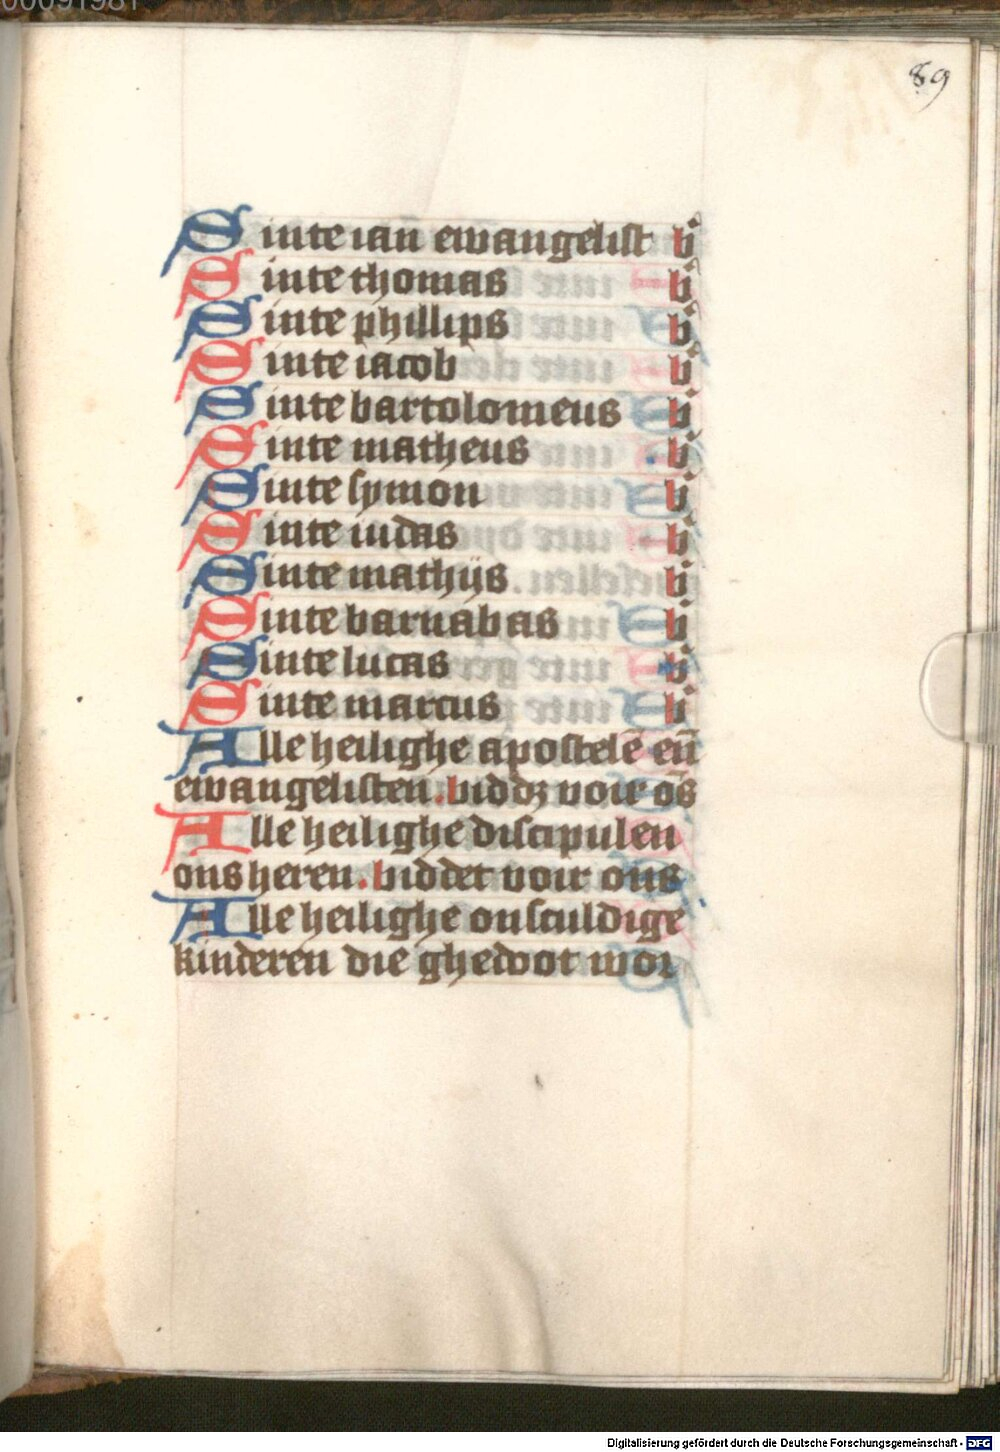 89
Sinte ian ewangelist b
Sinte thomas b
Sinte phillips b
Sinte iacob b
Sinte bartolomeus b
Sinte matheus b
Sinte symon b
Sinte iudas b
Sinte mathijs b
Sinte barnabas b
Sinte lucas b
Sinte marcus b
Alle heilighe apostelē en̄
ewangelisten. biddꝫ voir ōs
Alle heilighe discipulen
ons heren. biddet voir ons
Alle heilighe onsculdige
kinderen die ghedoot wor
Digitalisierung gefördert durch die Deutsche Forschungsgemeinschaft - DFG